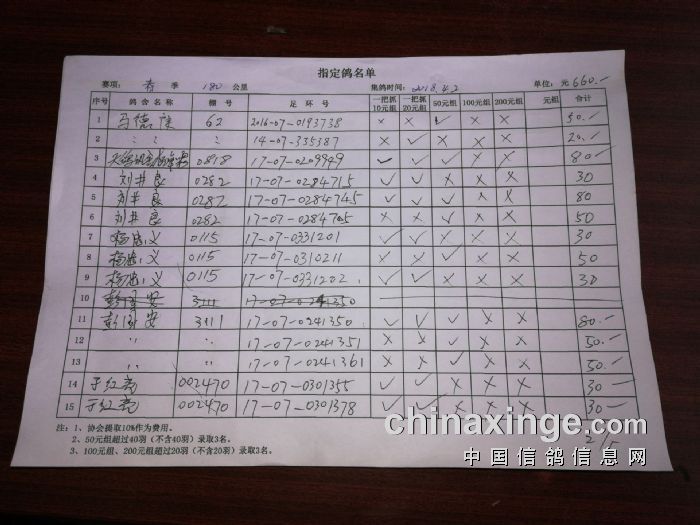 指定鸽名单
赛项： 春 季 180 公里 集鸽时间： 2018.4.2 单位：元 660.-
序号 鸽舍名称 棚号 足环号 一把抓10元组 一把抓20元组 50元组 100元组 200元组 元组 合计
1 马德 62 2016-07-0193738 × × ✓ × × 50.-
2 14-07-335387 × ✓ × × × 20.-
3 0818 17-07-0209949 ✓ ✓ ✓ × × 80.-
4 刘井良 0282 17-07-0284715 ✓ ✓ × × × 30
5 刘井良 0282 17-07-0284745 ✓ ✓ ✓ × × 80
6 刘井良 0282 17-07-0284705 × × ✓ × × 50
7 杨忠义 0115 17-07-0331201 ✓ ✓ × × × 30
8 杨忠义 0115 17-07-0310211 × × ✓ × × 50
9 杨忠义 0115 17-07-0331202 ✓ ✓ × × × 30
10 彭国安 3111 17-07-0241350
11 彭国安 3111 17-07-0241350 ✓ ✓ ✓ × × 80.-
12 〃 〃 17-07-0241351 × × ✓ × × 50.-
13 〃 〃 17-07-0241361 × × ✓ × × 50.-
14 于红亮 002470 17-07-0301355 ✓ ✓ × × × 30.-
15 于红亮 002470 17-07-0301378 ✓ ✓ × × × 30.-
注：1、协会提取10%作为费用。
2、50元组超过40羽（不含40羽）录取3名。
3、100元组、200元组超过20羽（不含20羽）录取3名。
chinaxinge.com
中国信鸽信息网